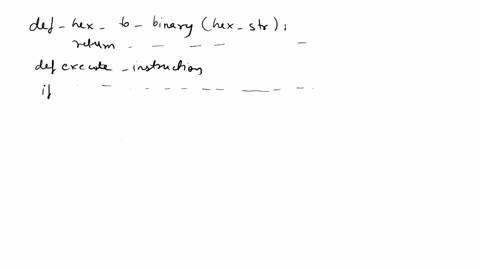 def - hex - to - binary (hex - str);
return - - - - -
def execute - instruction
if - - - - - - - - -